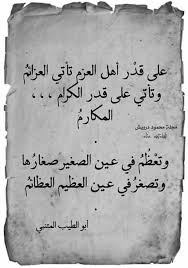 على قدْر أهل العزم تأتي العزائمُ
وتأتي على قدر الكرام ،،،
المكارمُ
مجلة محمود درويش
.
وتعْظُمُ في عين الصغير صغارُها
وتصغرُ في عين العظيم العظائمُ
أبو الطيب المتنبي